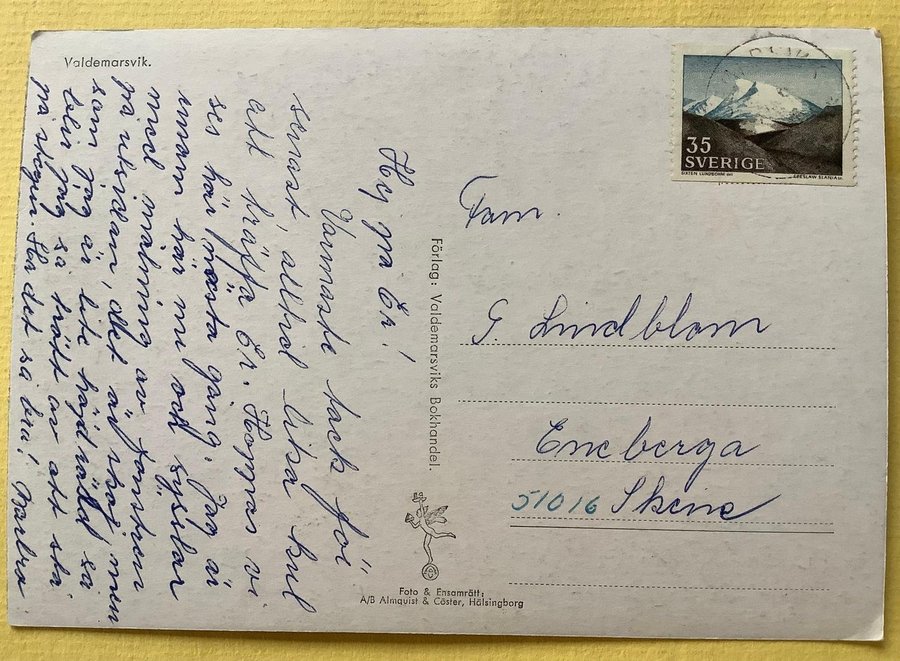 Valdemarsvik.
Hej på Er!
Varmaste tack för
senast, alltid lika kul
att träffa Er. Hoppas vi
ses här nästa gång. Jag är
ensam här nu och sysslar
med målning av fönstren
på utsidan, det är skoj men
som jag är lite höjdrädd så
blir jag så trött av att stå
på stegen. Ha det så bra! Barbro
Förlag: Valdemarsviks Bokhandel.
Foto & Ensamrätt:
A/B Almquist & Cöster, Hälsingborg
35
SVERIGE
SIXTEN LUNDBOHM del. CZESLAW SLANIA sc.
Fam.
G. Lindblom
Eneberga
51016 Skene